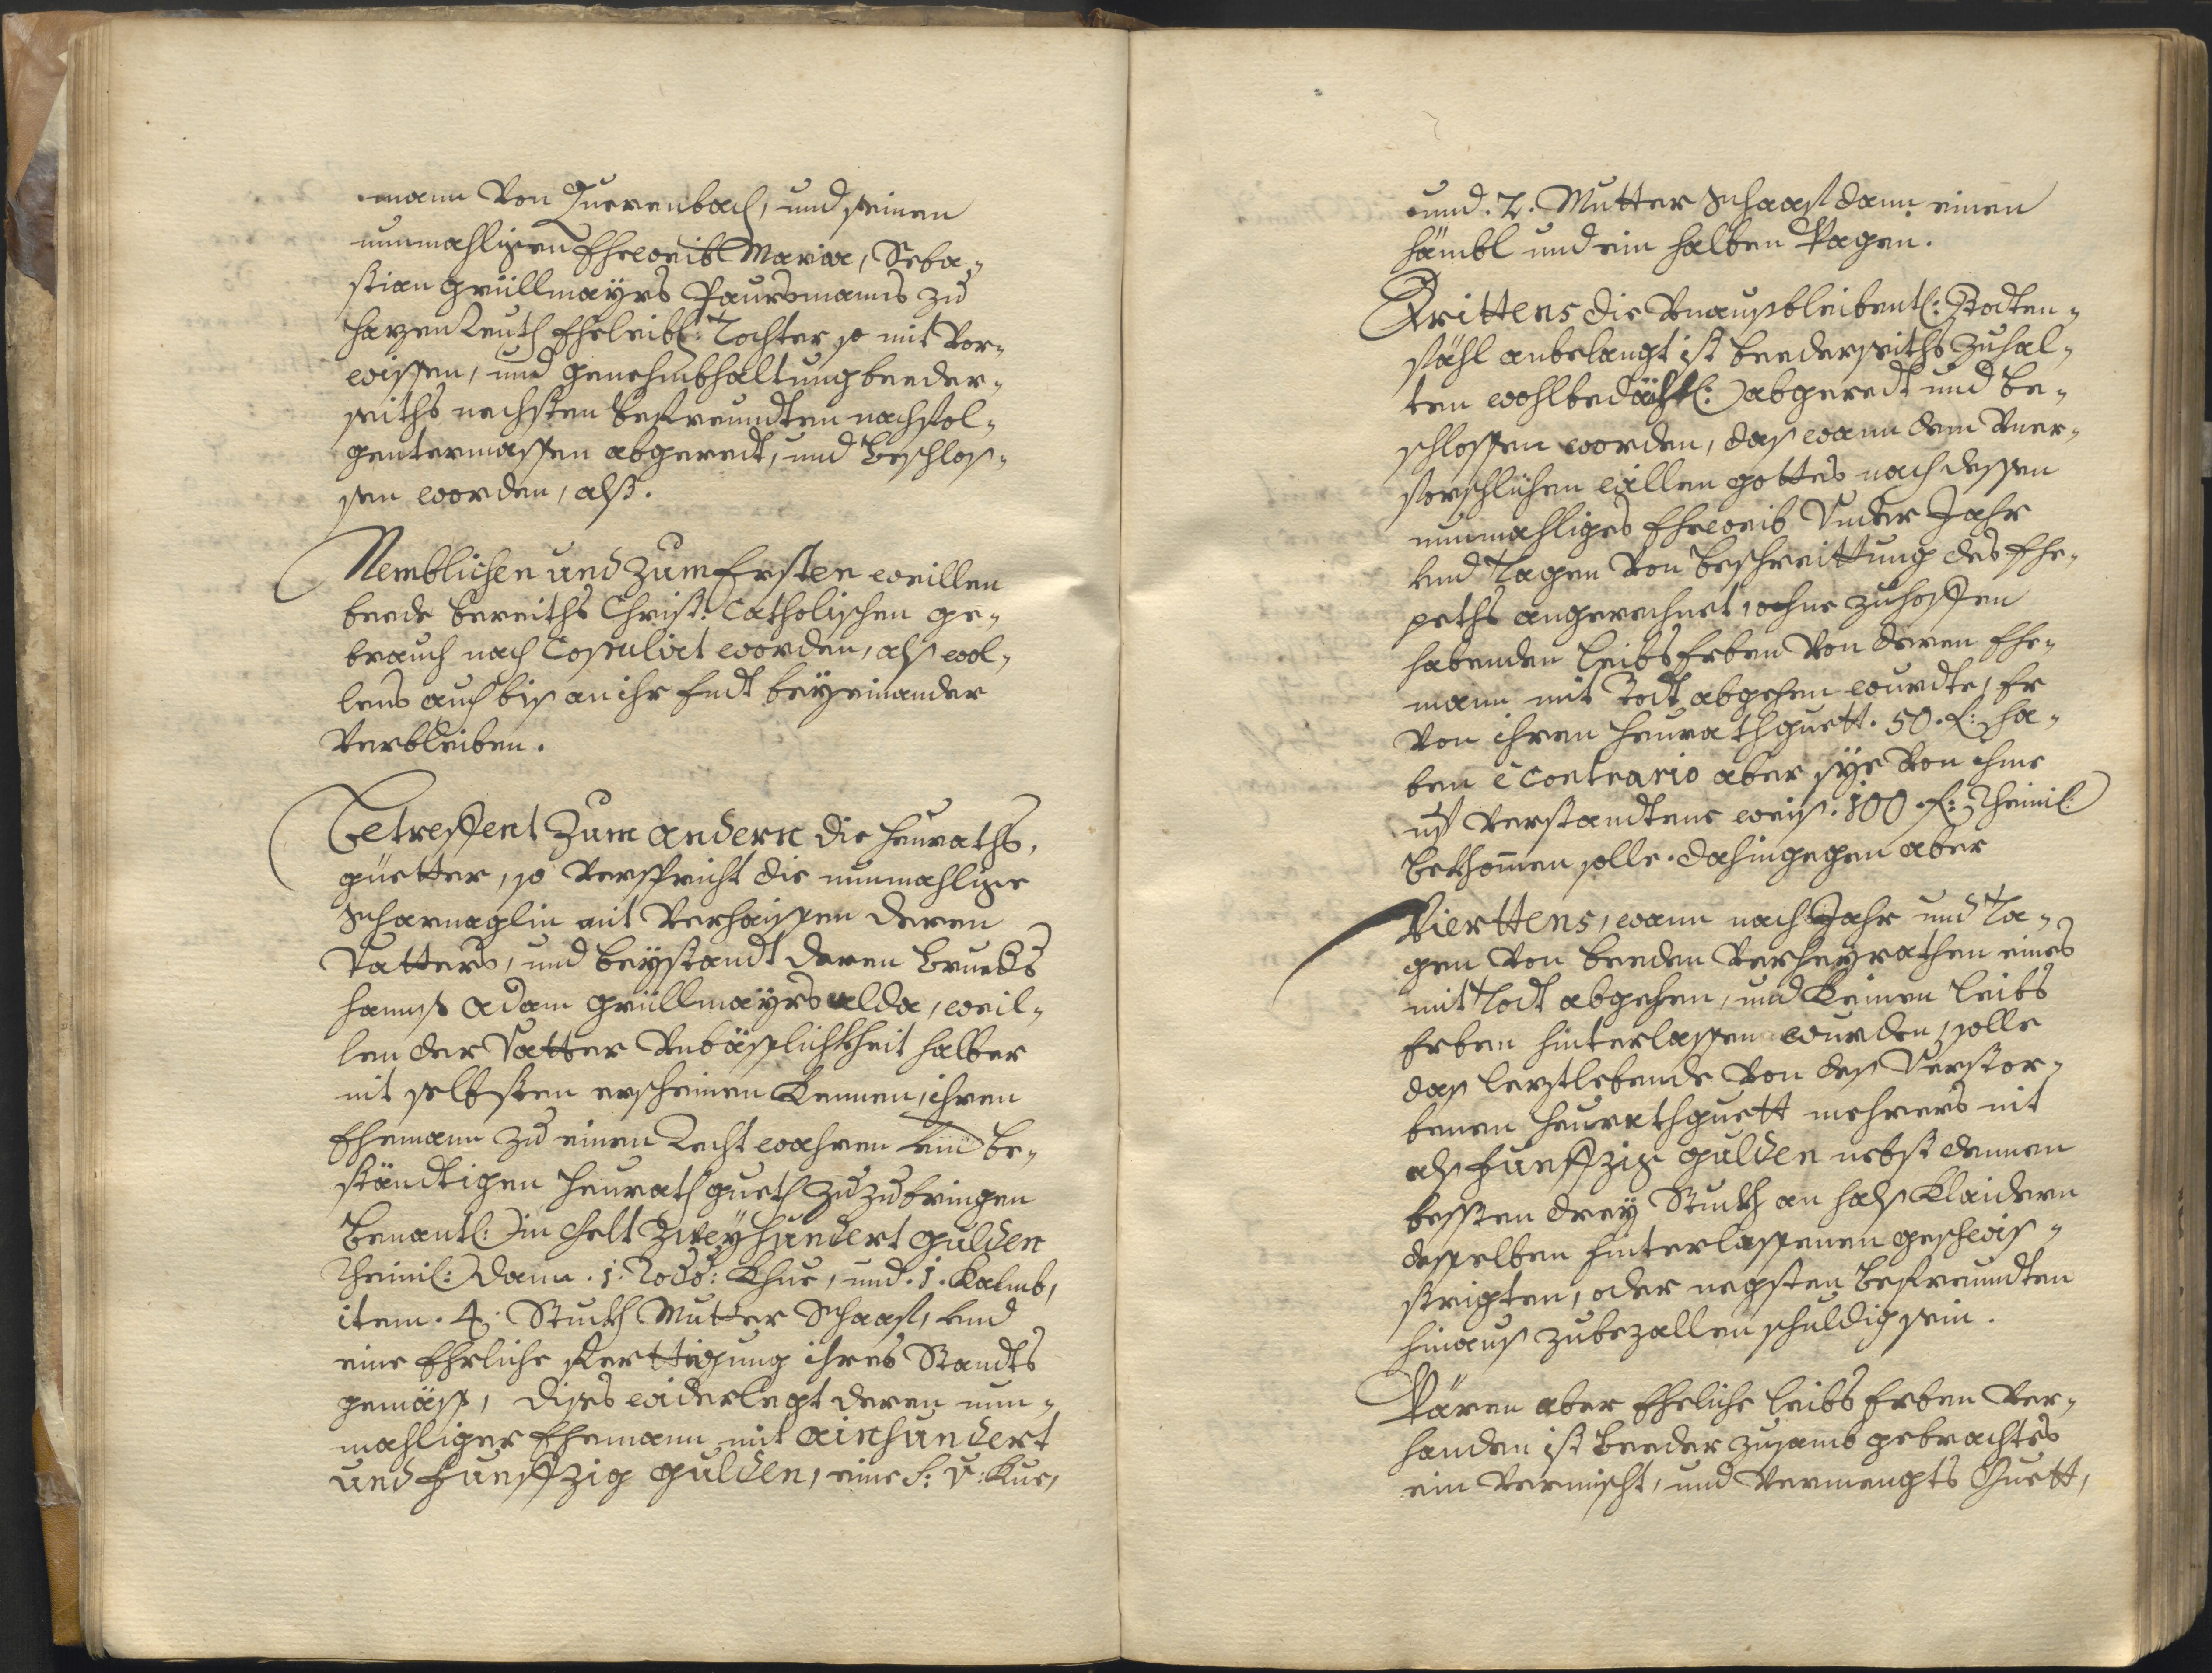 mann von Zuerenbach, und seinen
nunmahligen Eheweib Maria, Seba¬
stian Grüllmayrs Paursmanns zu
Harzenleuth Eheleibl: Tochter so mit vor¬
wissen, und genehmbhaltung beeder¬
seiths nechsten Befreundten nachfol¬
gentermassen abgeredt, und beschlos¬
sen worden, alß.
Nemblichen und zum Ersten weillen
beede bereiths Christ: Catholischen ge¬
brauch nach Copulirt worden, alß wol¬
lens auch biß an ihr Endt beyeinander
verbleiben.
Betreffent zum andern die heuraths¬
güetter, so verspricht die nunmahlige
Scharnaglin mit verhaissen deren
Vatters, und beystandt deren Brueders
Hannß Adam Grüllmayrs alda, weil¬
len der Vatter Unbässlichkheit halber
nit selbsten erscheinen kennen, ihren
Ehemann zu einen Recht wahren und be¬
ständtigen heurathgueth zuzubringen
benantl: in Gelt Zweyhundert gulden
Rheinl: dann .1. Khue, und .1. Kalmb,
item .4. Stuckh Mutter Schaaf, und
eine Ehrliche Ferttigung ihres Standts
gemäss, dises widerlegt deren nun¬
mahliger Ehemann mit ainhundert
und funffzig gulden, eine s: v: Kue,
und .2. Mutter Schaaf dann einen
hämbl und ein halben Wagen.
Drittens die Unausbleibentl: Todten¬
fähl anbelangt ist beederseiths zuhal¬
ten wohlbedächtl: abgeredt und be¬
schlossen worden, das wann dem Uner¬
forschlichen willen gottes nach dessen
nunmahliges Eheweib Under Jahr
und Tagen von beschreittung des Ehe¬
peths angerechnet, ohne zuhoffen
habenden leibs Erben von deren Ehe¬
mann mit Todt abgehen wurdte, Er
von ihren heurathguett .50. f: ha¬
ben e contrario aber sye von ihme
uf verstandtene weis .100. f: Rheinl:
bekhommen solle. dahingegen aber
Vierttens, wann nach Jahr und Ta¬
gen von beeden verheyrathen eines
mit Todt abgehen, und keinen leibs
Erben hinterlassen wurden, solle
das lezstlebende von des Verstor¬
benen heurathguett mehrers nit
alß funffzig gulden nebst dennen
bessten drey Stuckh an halß Klaidern
desselben hinterlassenen geschwis¬
strigten, oder negsten befreundten
hinauß zubezallen schuldig sein.
Wären aber Eheliche leibs Erben ver¬
handen ist beeder zusamb gebrachtes
ein vermischt, und vermengts Guett,